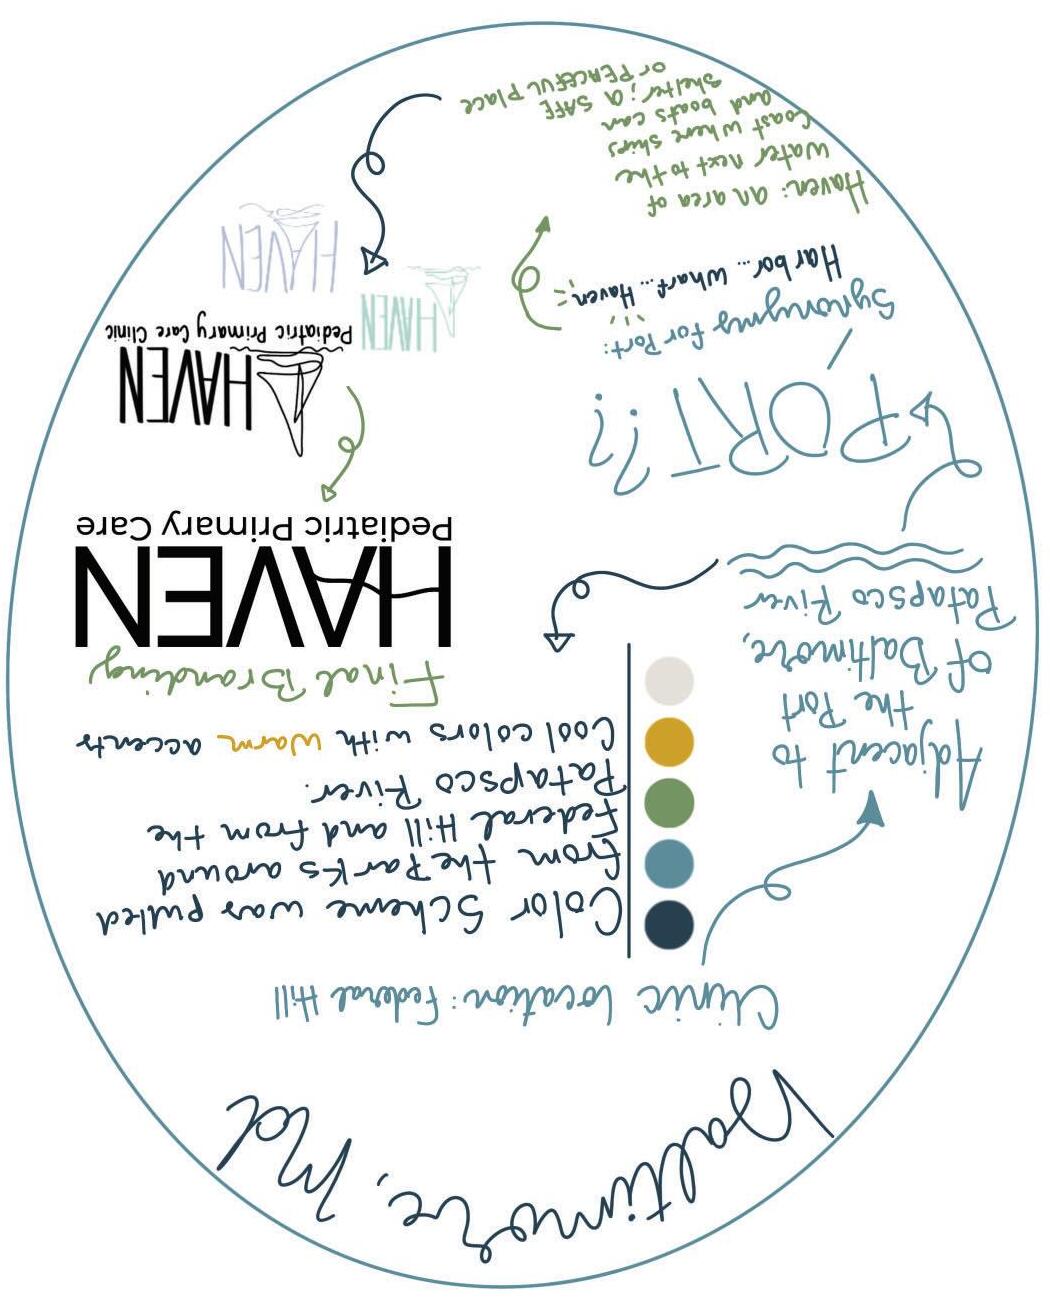 Baltimore, Md
Clinic location: Federal Hill
Adjacent to
the Port
of Baltimore,
Patapsco River
PORT??
Synonyms for Port:
Harbor... Wharf... Haven
Haven: an area of
water next to the
coast where ships
and boats can
shelter; a SAFE
or PEACEFUL place
HAVEN
HAVEN
HAVEN
Pediatric Primary Care Clinic
Color Scheme was pulled
from the Parks around
Federal Hill and from the
Patapsco River.
Cool colors with warm accents
Final Branding
HAVEN
Pediatric Primary Care